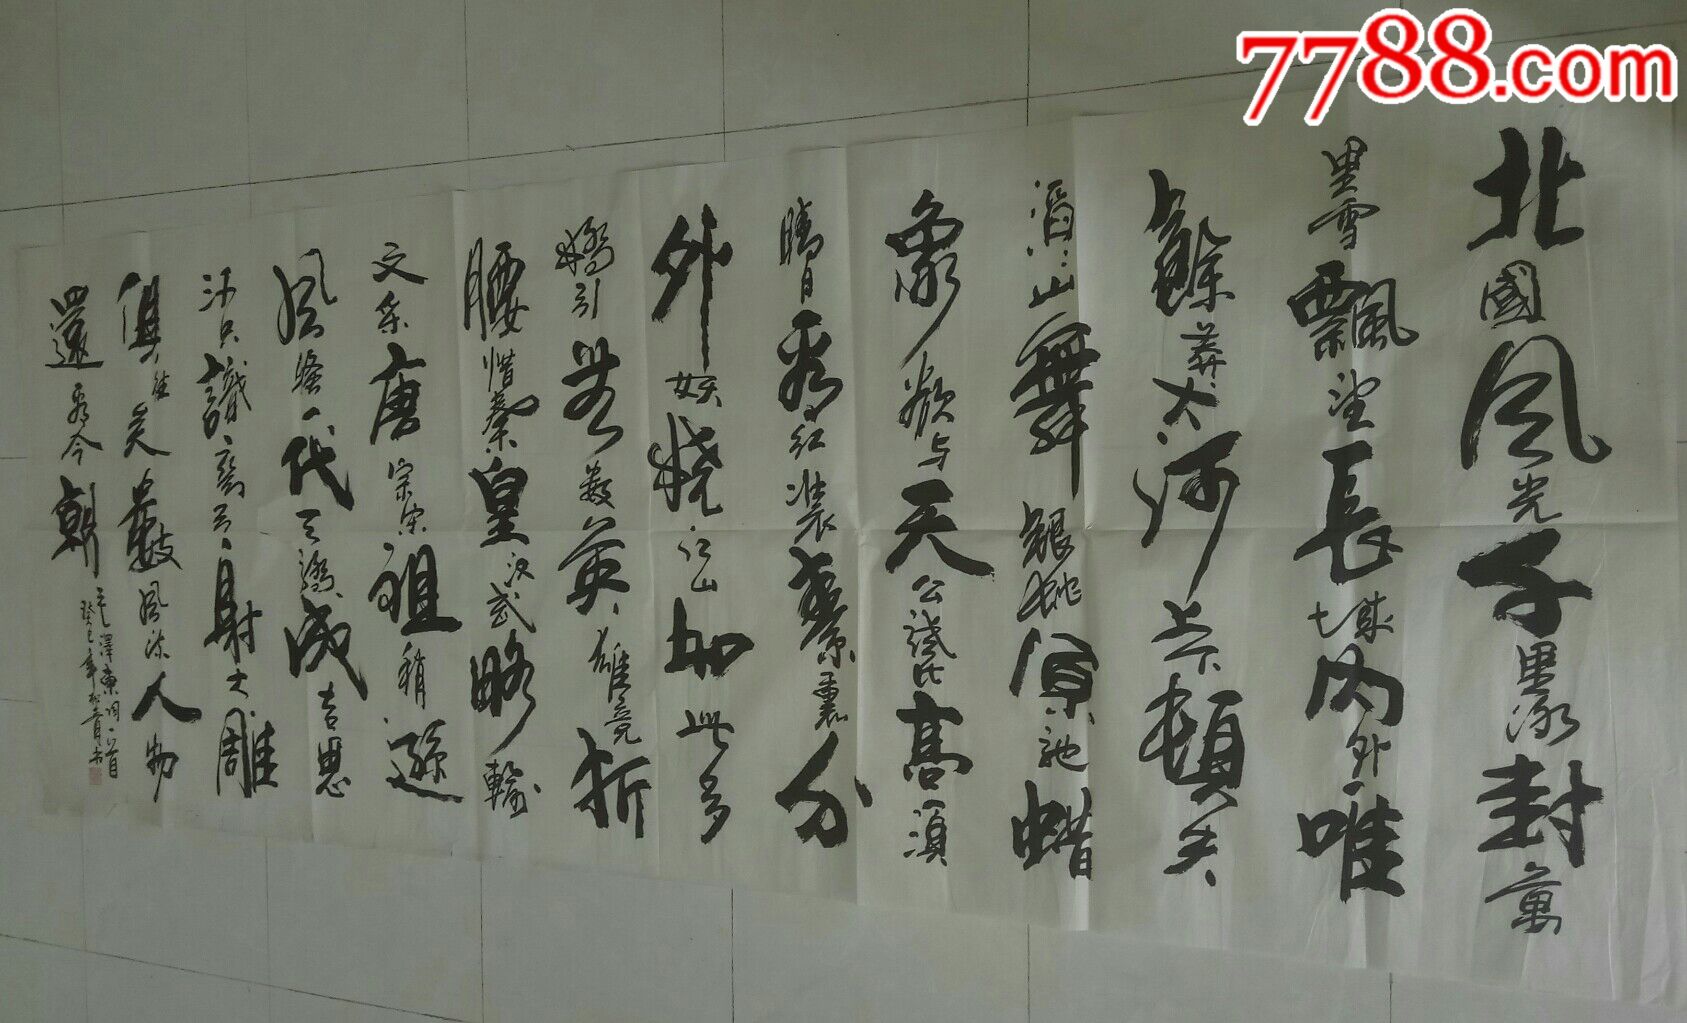 7788.com
北國风光千里冰封萬
里雪飄望長城内外唯
餘莽〻大河上下頓失
滔〻山舞銀蛇原馳蜡
象欲与天公試比高須
晴日看红装素裹分
外妖娆江山如此多
嬌引无数英雄竞折
腰惜秦皇汉武略輸
文采唐宗宋祖稍遜
风騷一代天骄成吉思
汗只識弯弓射大雕
俱往矣數风流人物
還看今朝
毛澤東词一首
癸巳年书